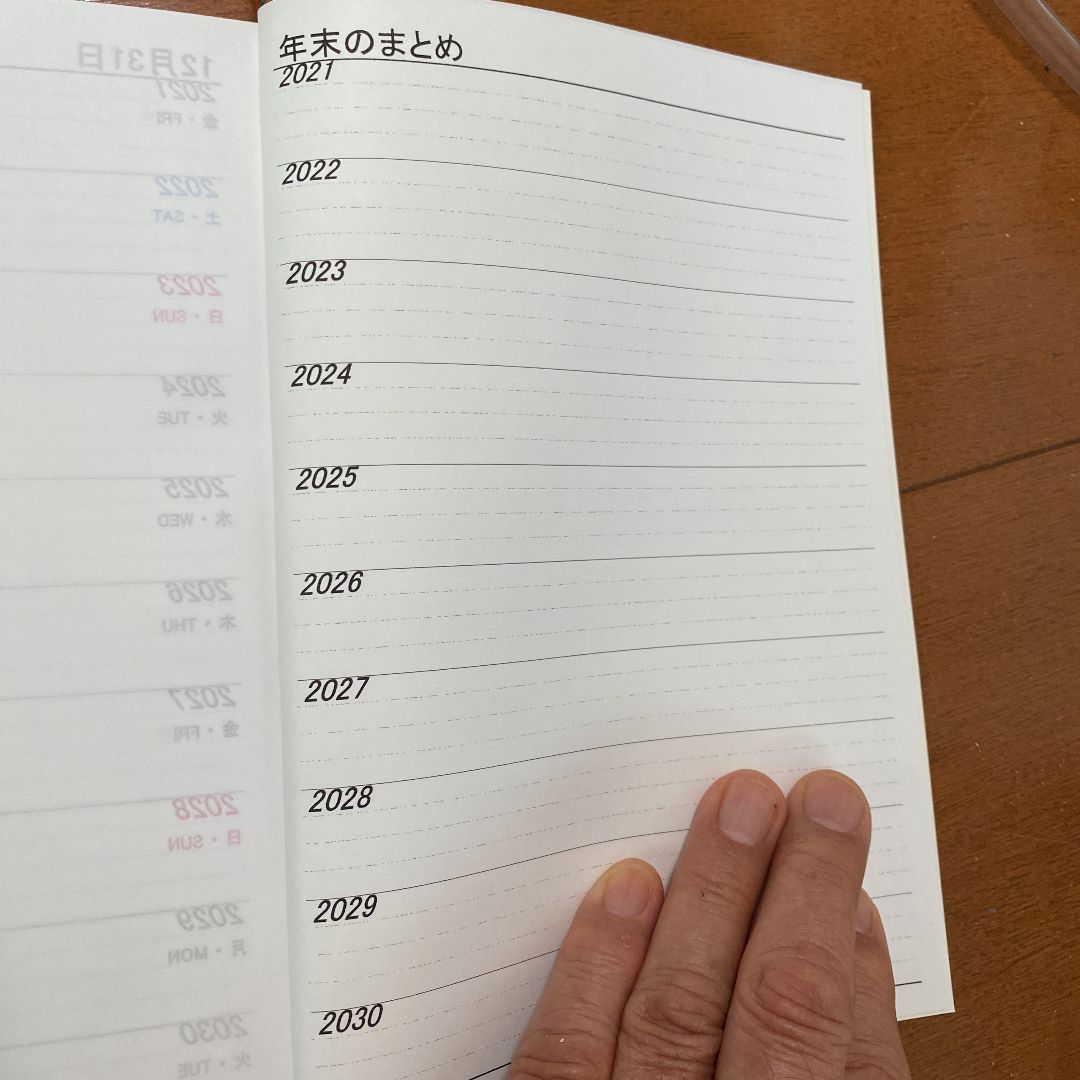 12月31日
2021
金・FRI
2022
土・SAT
2023
日・SUN
2024
火・TUE
2025
水・WED
2026
木・THU
2027
金・FRI
2028
日・SUN
2029
月・MON
2030
火・TUE
年末のまとめ
2021
2022
2023
2024
2025
2026
2027
2028
2029
2030